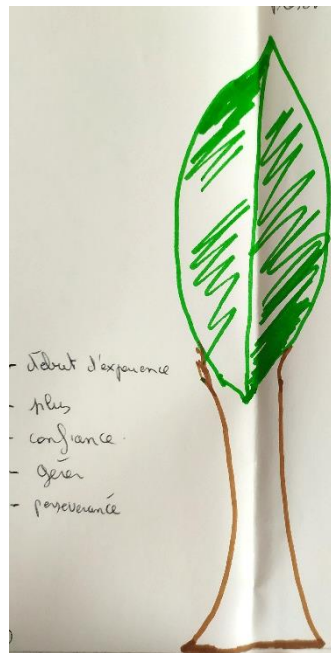 - début d'expérience
- plus
- confiance
- gérer
- perseverance